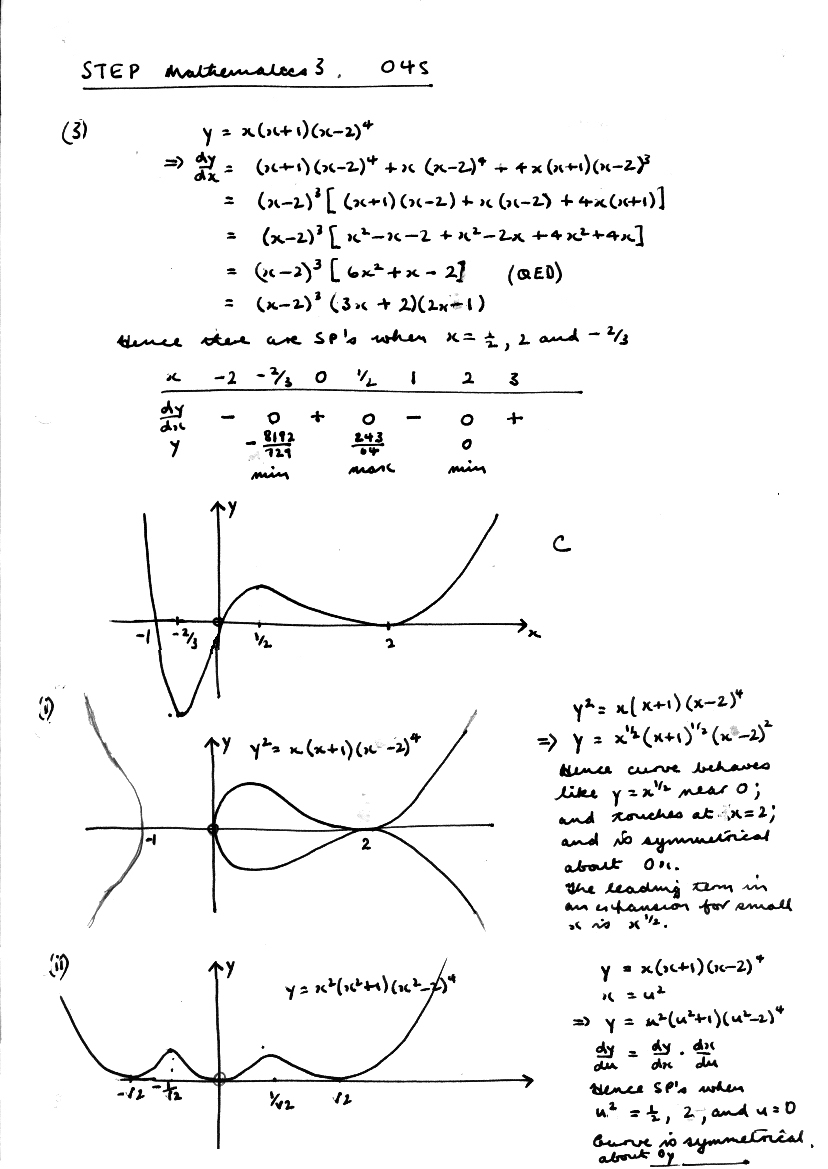 STEP Mathematics 3. 04S
(3) y = x(x+1)(x-2)⁴
⇒ dy/dx = (x+1)(x-2)⁴ + x(x-2)⁴ + 4x(x+1)(x-2)³
= (x-2)³[(x+1)(x-2) + x(x-2) + 4x(x+1)]
= (x-2)³[x²-x-2 + x²-2x + 4x²+4x]
= (x-2)³[6x²+x-2] (QED)
= (x-2)³(3x+2)(2x-1)
Hence there are SP's when x = ½, 2 and -2/3
x -2 -2/3 0 1/2 1 2 3
dy/dx - 0 + 0 - 0 +
y -8192/729 243/64 0
min max min
y
C
-1 -2/3 1/2 2 x
(i) y² = x(x+1)(x-2)⁴
⇒ y = x^½(x+1)^½(x-2)²
y y² = x(x+1)(x-2)⁴
-1 2
Hence curve behaves
like y = x^½ near 0;
and touches at x=2;
and is symmetrical
about Ox.
The leading term in
an expansion for small
x is x^½.
(ii) y y = x²(x²+1)(x²-2)⁴
-√2 -1/√2 1/√2 √2
y = x(x+1)(x-2)⁴
x = u²
⇒ y = u²(u²+1)(u²-2)⁴
dy/du = dy/dx . dx/du
Hence SP's when
u² = ½, 2, and u=0
Curve is symmetrical.
about Oy